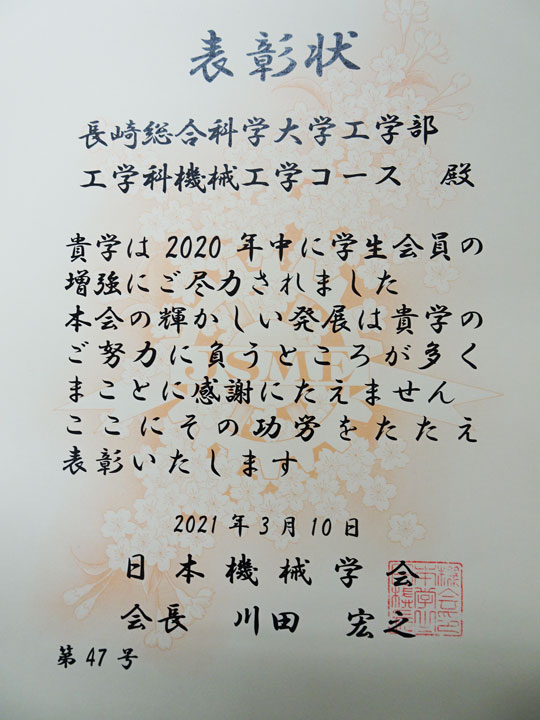 表彰状
長崎総合科学大学工学部
工学科機械工学コース 殿
貴学は2020年中に学生会員の
増強にご尽力されました
本会の輝かしい発展は貴学の
ご努力に負うところが多く
まことに感謝にたえません
ここにその功労をたたえ
表彰いたします
JSME
2021年3月10日
日本機械学会
会長 川田 宏之
第47号